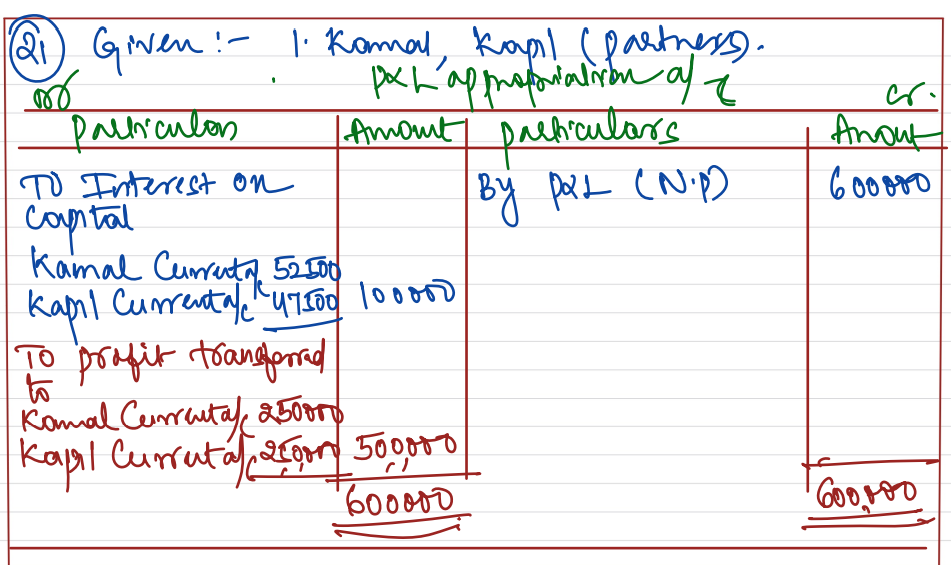 21 Given :- 1. Kamal, Kapil (partners).
P&L appropriation a/c
Dr Cr.
Particulars Amount Particulars Amount
To Interest on By P&L (N.P) 600000
Capital
Kamal Current a/c 52500
Kapil Current a/c 47500 100000
To profit transferred
to
Kamal Current a/c 250000
Kapil Current a/c 250000 500000
600000 600,000